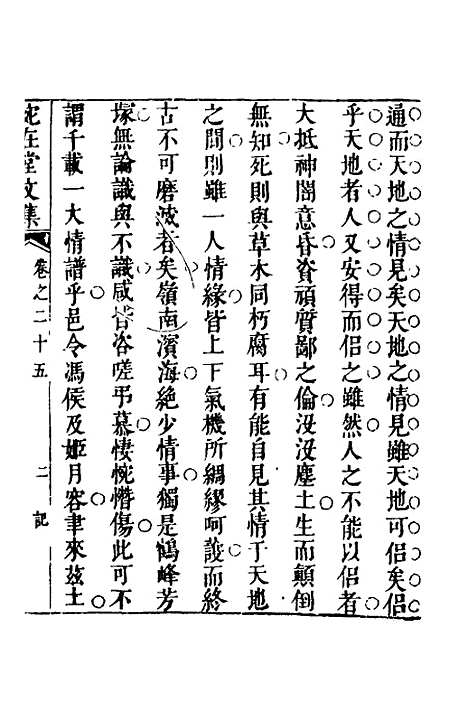 通而天地之情見矣天地之情見雖天地可侶矣侶
乎天地者人又安得而侶之雖然人之不能以侶者
大抵神闇意昏資頑質鄙之倫沒沒塵土生而顛倒
無知死則與草木同朽腐耳有能自見其情于天地
之間則雖一人情緣皆上下氣機所綢繆呵護而終
古不可磨滅者矣嶺南濱海絶少情事獨是鶴峰芳
塚無論識與不識咸皆咨嗟弔慕悽惋憯傷此可不
謂千載一大情譜乎邑令馮侯及姬月容聿來茲土
在堂文集
卷之二十五
二
記